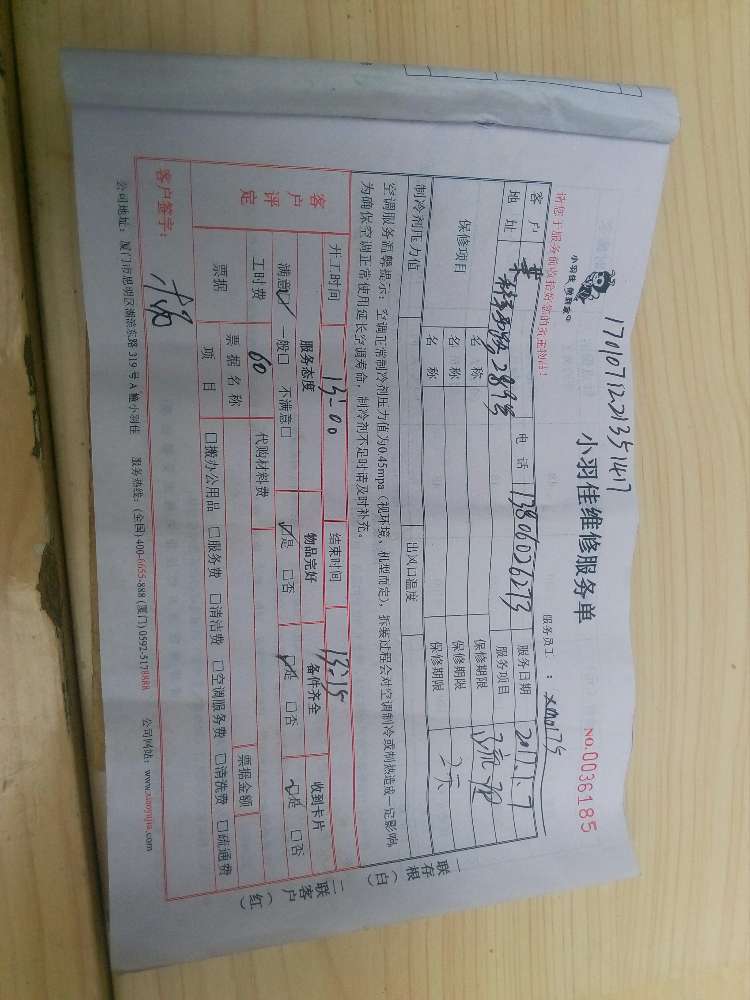 1701071221351417
小羽佳 做到家
小羽佳维修服务单
NO.0036185
请您于服务前收拾好您的贵重物品!
服务员工: xm0175
客户 电话 13806026273 服务日期 2017.1.7
地址 服务项目 疏通
保修项目 名称 保修期限
名称 保修期限
名称 保修期限
制冷剂压力值 出风口温度
空调服务温馨提示:空调正常制冷剂压力值为0.45mpa(视环境、机型而定),拆装过程会对空调制冷或制热造成一定影响,
为确保空调正常使用延长空调寿命,制冷剂不足时请及时补充。
一联存根(白) 二联客户(红)
客户评定
开工时间 13:00 结束时间 13:15
服务态度 物品完好 备件齐全 收到卡片
满意☑ 一般□ 不满意□ ☑是 □否 ☑是 □否 ☑是 □否
工时费 60 代购材料费
票据 票据名称 票据金额
项目 □搬办公用品 □服务费 □清洁费 □空调服务费 □清洗费 □疏通费
客户签字:
公司地址:厦门市思明区湖滨东路 319 号 A 幢小羽佳 服务热线:(全国) 400-6655-888 (厦门) 0592-3178888 公司网站:www.xiaoyujia.com